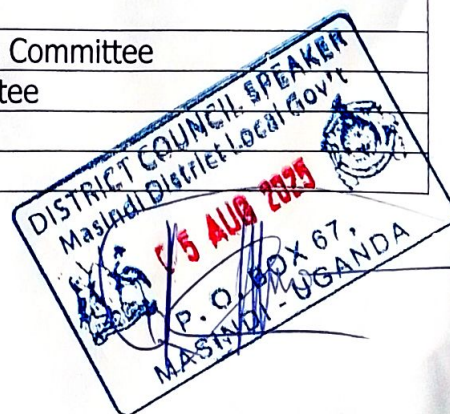 Committee
tee
DISTRICT COUNCIL SPEAKER
Masindi District Local Gov't
05 AUG 2025
P. O. BOX 67,
MASINDI - UGANDA